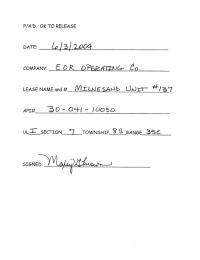 P/A'D. OK TO RELEASE
DATE: 6/3/2009
COMPANY: EOR OPERATING Co.
LEASE NAME and #: MILNESAND UNIT #137
API# 30-041-10050
UL I SECTION 7 TOWNSHIP 8S RANGE 35E
SIGNED: